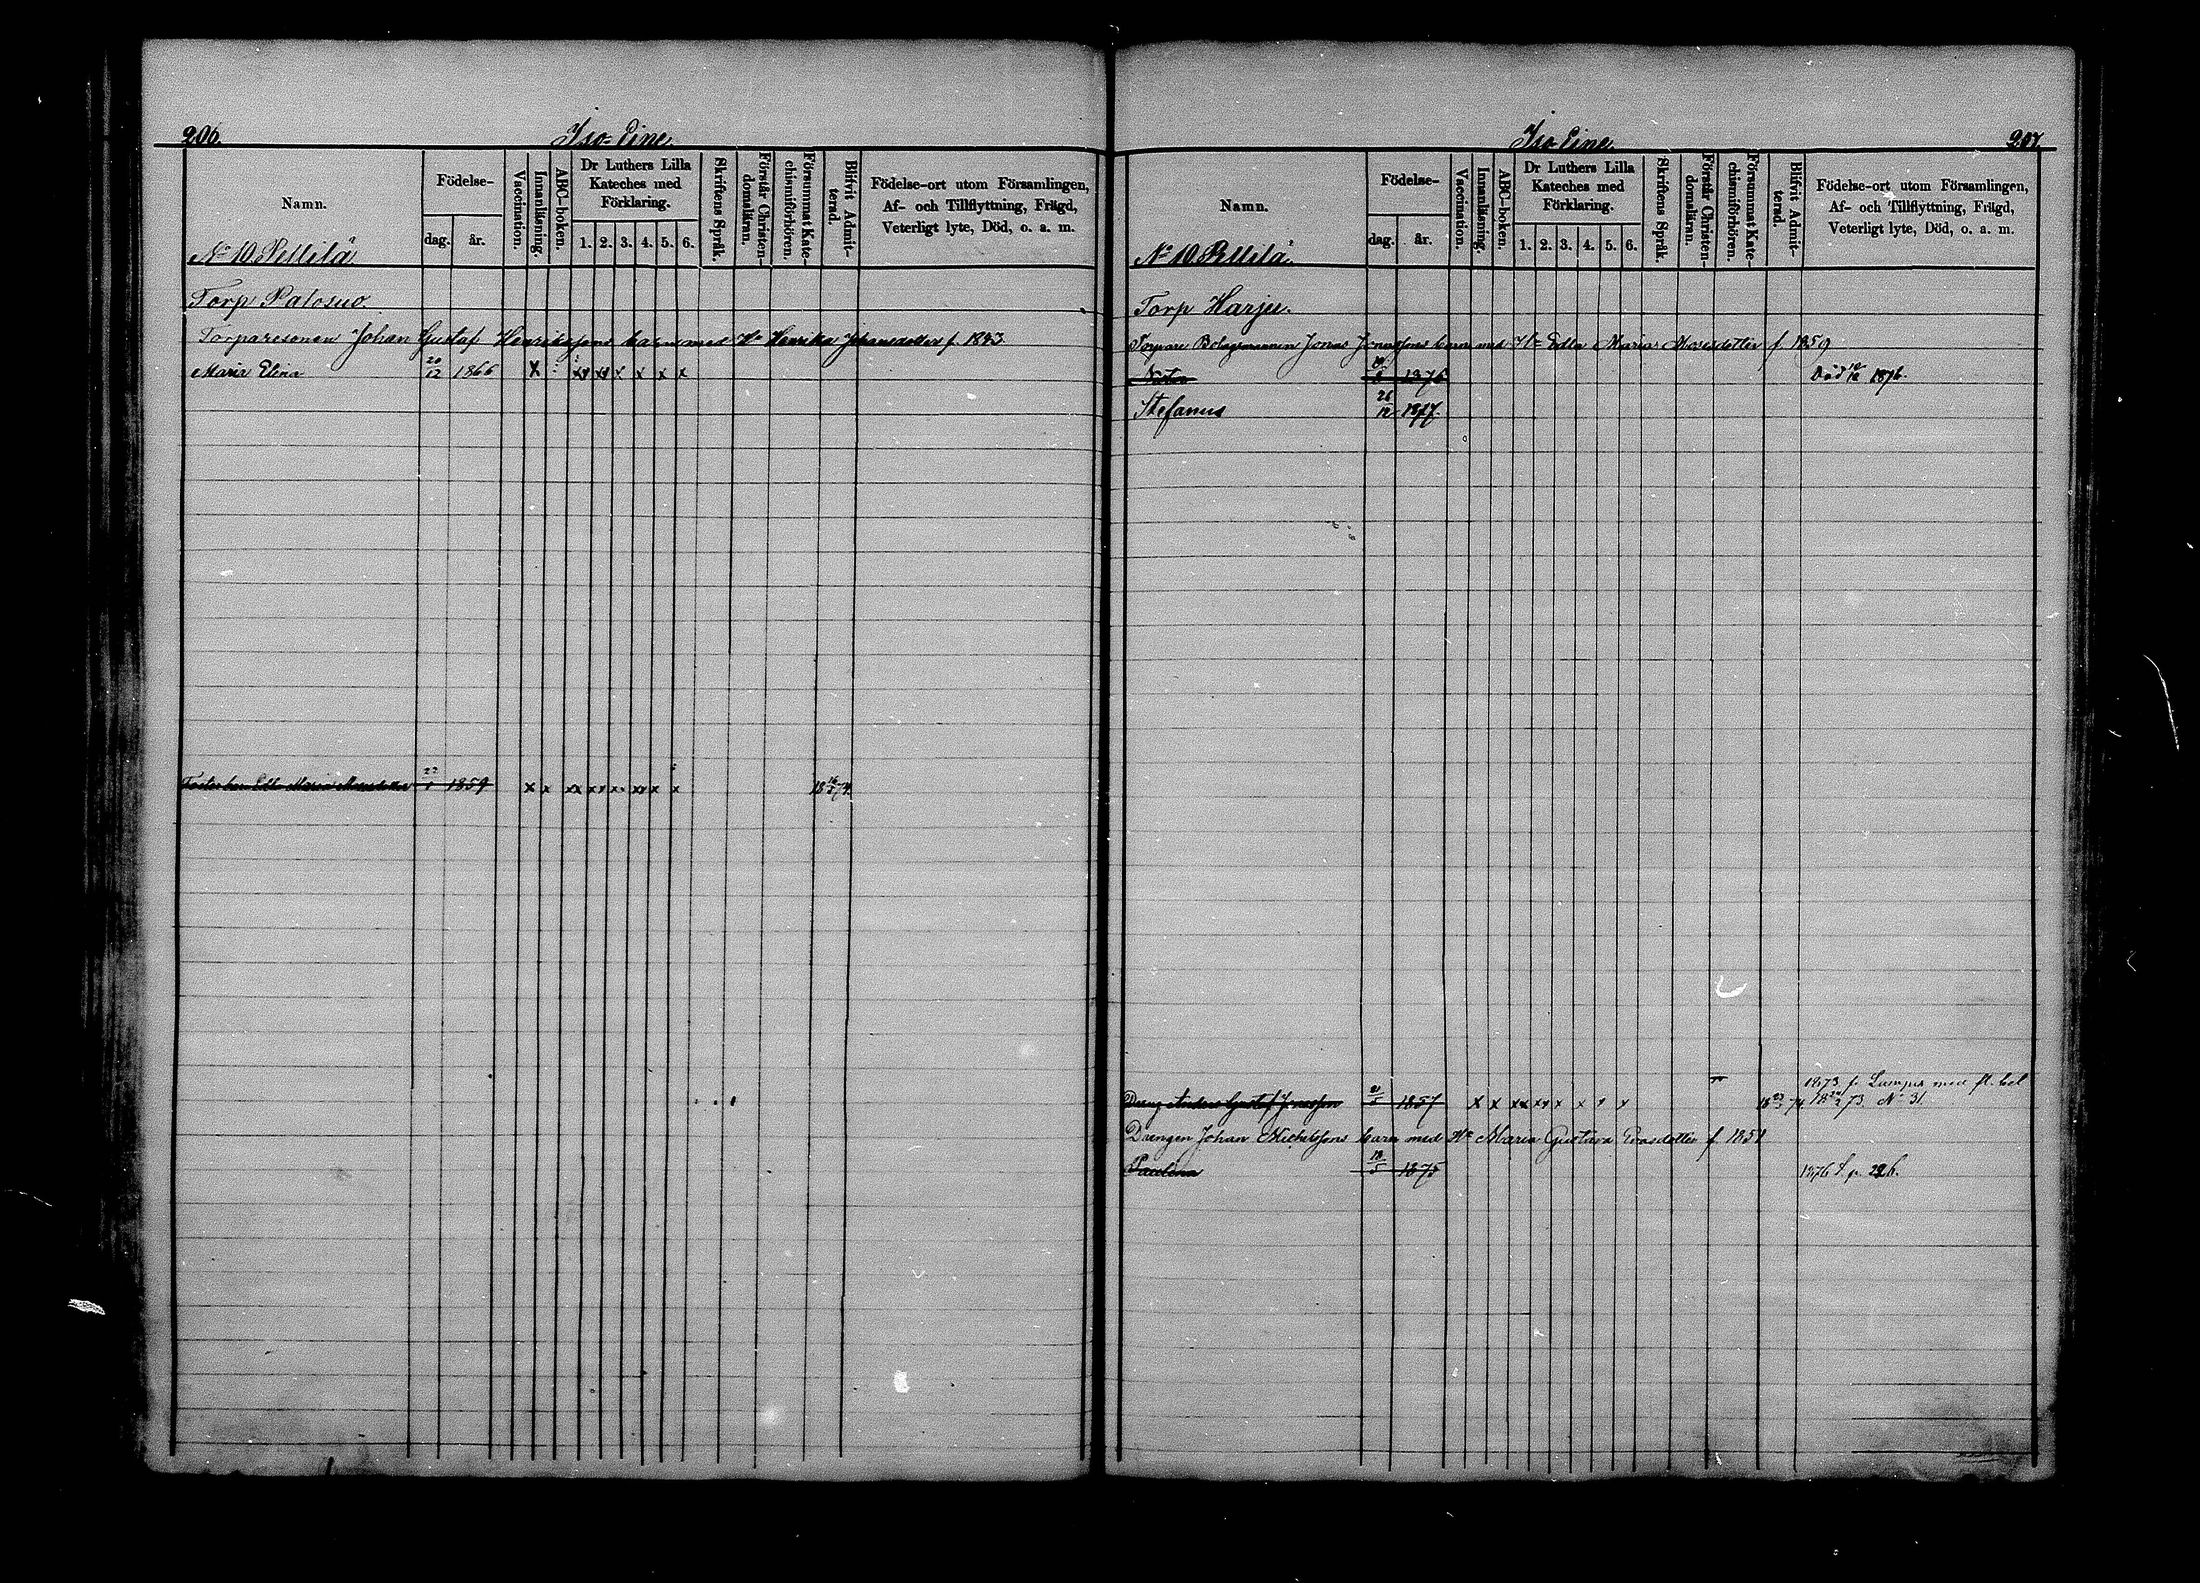 206.
Iso-Eine.
Namn.
Födelse-
dag.
år.
Vaccination.
Innanläsning.
ABC-boken.
Dr Luthers Lilla
Kateches med
Förklaring.
1. 2. 3. 4. 5. 6.
Skriftens Språk.
Förstår Christen-
domsläran.
Försummat Kate-
chismiförhören.
Blifvit Admit-
terad.
Födelse-ort utom Församlingen,
Af- och Tillflyttning, Frägd,
Veterligt lyte, Död, o. a. m.
No 10 Pellilä
Torp Palosuo.
Torparesonen Johan Gustaf Henrikssons barn med Ha Henrika Johansdotter f. 1843
Maria Elina 20/12 1866 X x x x x x x
Fosterbarn Edla Maria 22 1859 x x xx xx xx xx x x 18 16/5 74
Iso Eine.
207.
Namn.
Födelse-
dag.
år.
Vaccination.
Innanläsning.
ABC-boken.
Dr Luthers Lilla
Kateches med
Förklaring.
1. 2. 3. 4. 5. 6.
Skriftens Språk.
Förstår Christen-
domsläran.
Försummat Kate-
chismiförhören.
Blifvit Admit-
terad.
Födelse-ort utom Församlingen,
Af- och Tillflyttning, Frägd,
Veterligt lyte, Död, o. a. m.
No 10 Pellilä.
Torp Harju.
Torpare Bolagsmannen Jonas Jonassons barn med Ha Edla Maria Mosisdotter f. 1859
1876 Död 1876.
Stefanus 26/12 1877.
1873 fr. Lampis med fl. bel
Dreng Anders Gustaf Jonasson 21/5 1857 x x xx xx x x x x 18 23/5 74 18 73. No 31.
Drengen Johan Michelssons barn med Ha Maria Gustava Evasdotter f. 1851
Paulina 18/5 1875 1876 t. p. 226.